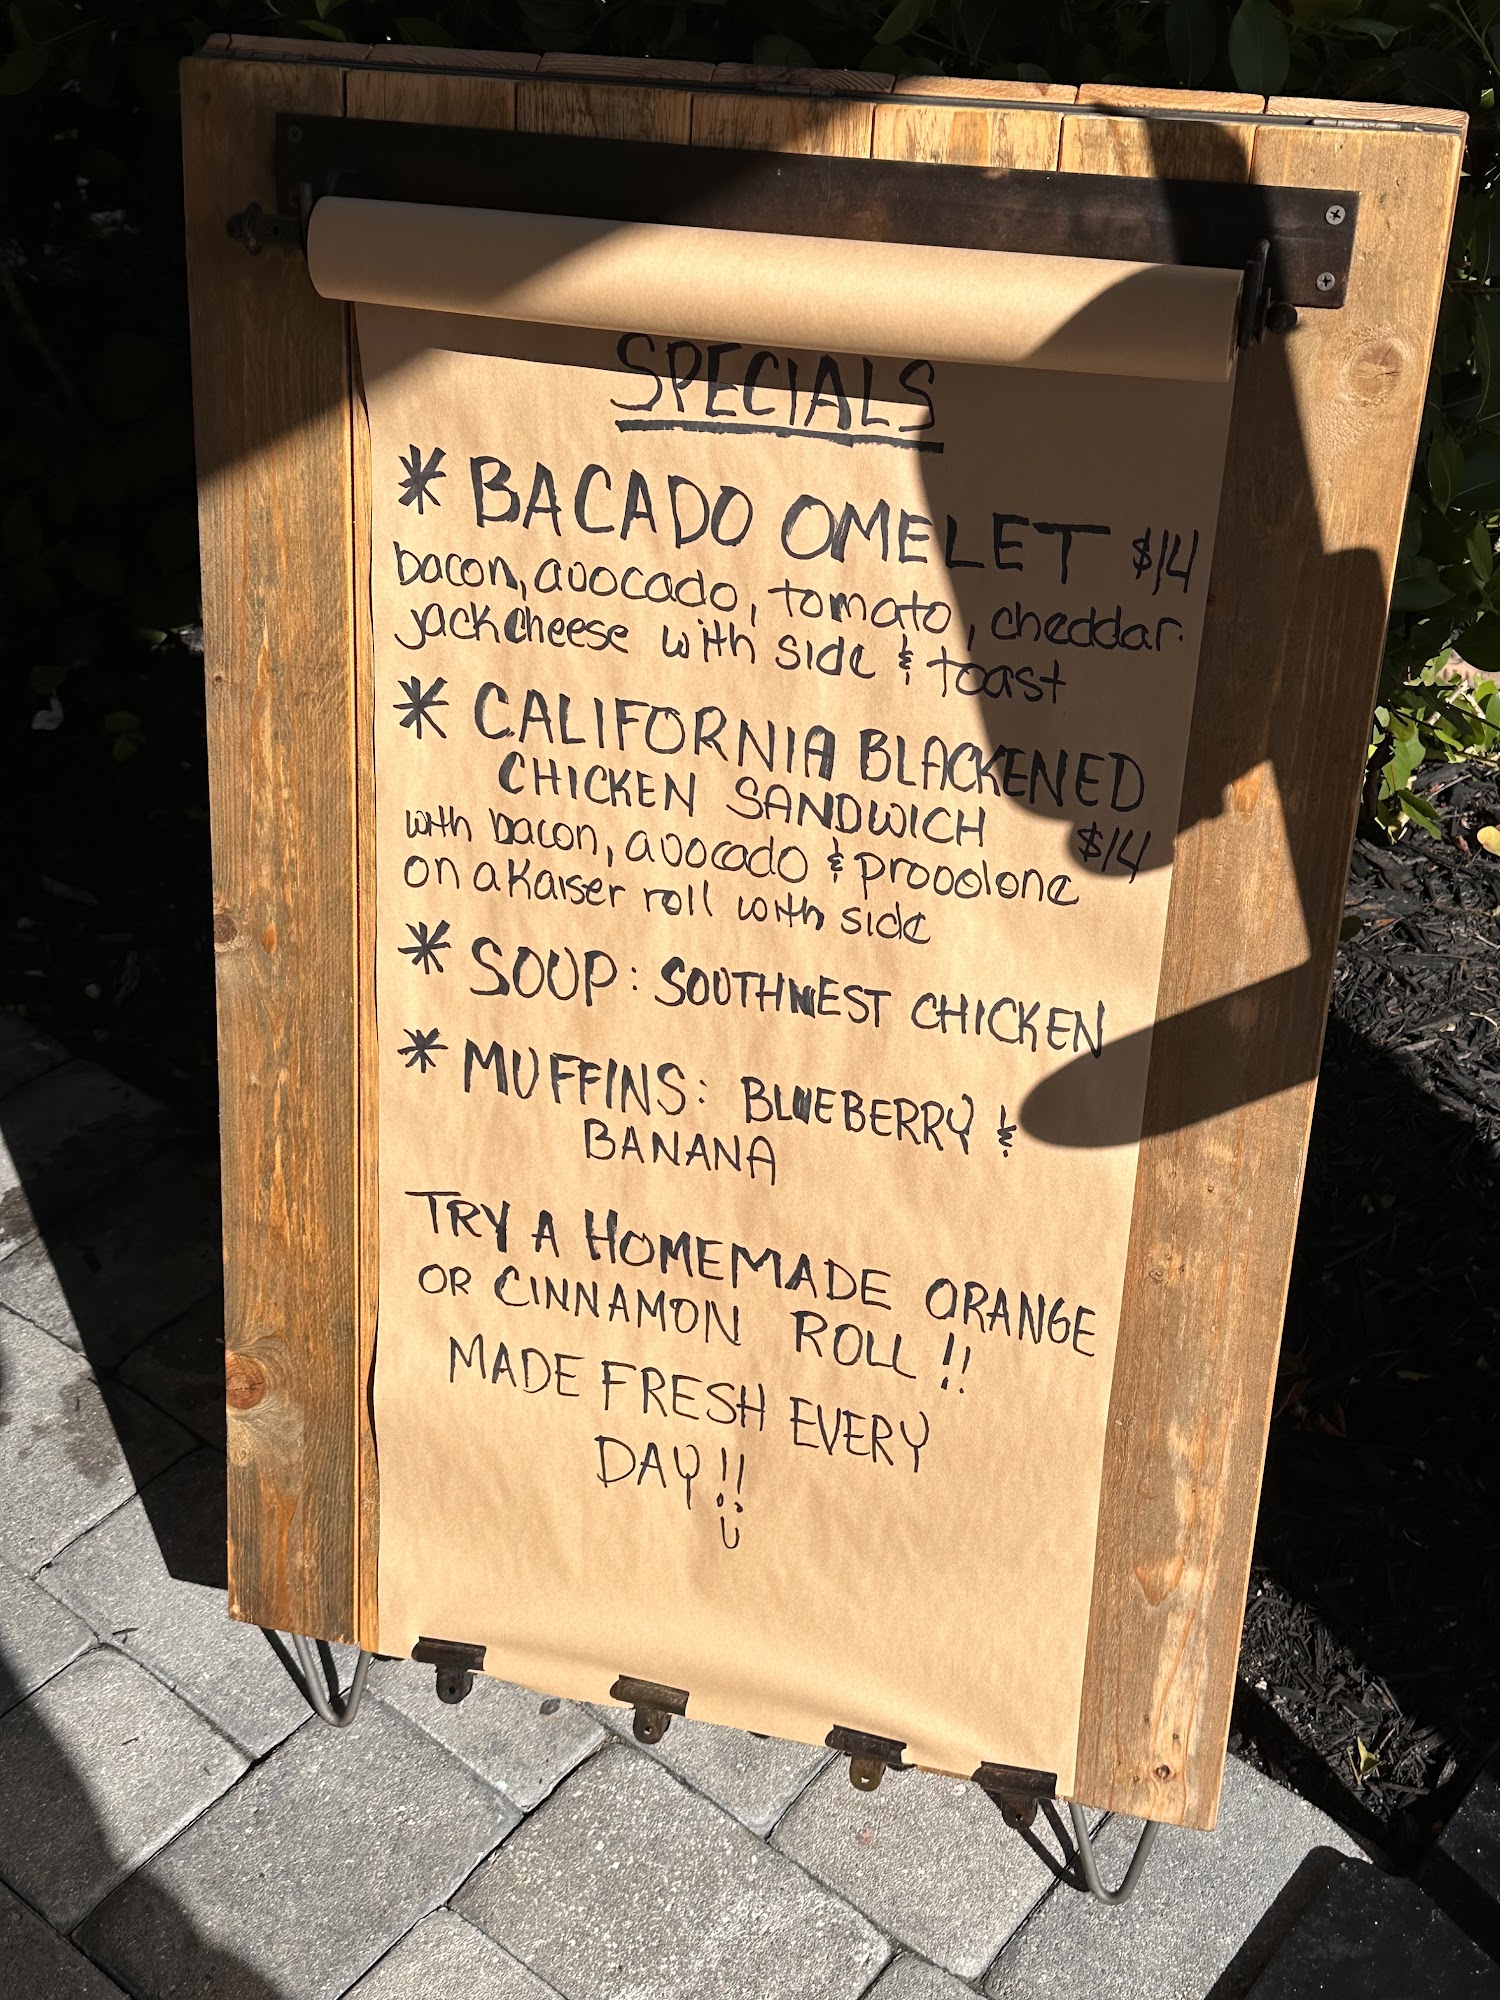 SPECIALS
* BACADO OMELET $14
bacon, avocado, tomato, cheddar
jack cheese with side & toast
* CALIFORNIA BLACKENED
CHICKEN SANDWICH $14
with bacon, avocado & provolone
on a Kaiser roll with side
* SOUP: SOUTHWEST CHICKEN
* MUFFINS: BLUEBERRY &
BANANA
TRY A HOMEMADE ORANGE
OR CINNAMON ROLL!!
MADE FRESH EVERY
DAY!!